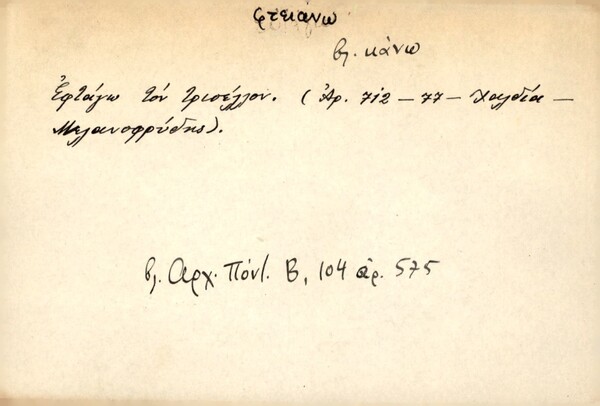 φτειάνω
βλ. κάνω
Ἐφτάγω τὸν τρισέλλον. (Ἀρ. 712 – 77 – Χαλδία –
Μελανοφρύδης).
βλ. Αρχ. Πόντ. Β, 104 ἀρ. 575